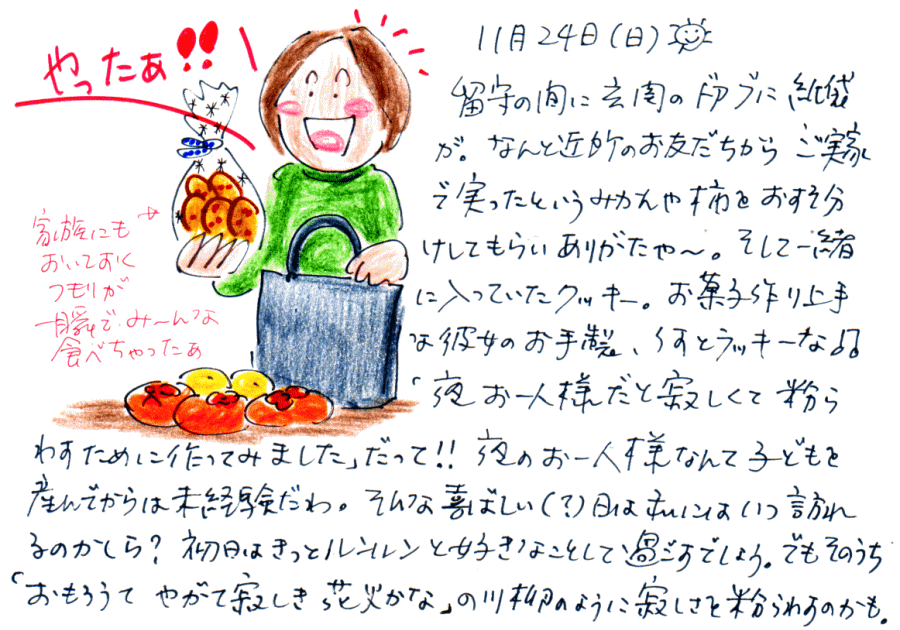 やったぁ!!
11月24日(日)
留守の間に玄関のドアノブに紙袋
が。なんと近所のお友だちから ご実家
で実ったというみかんや柿をおすそ分
けしてもらいありがたや〜。そして一緒
に入っていたクッキー。お菓子作り上手
な彼女のお手製、くすとラッキーな品
「夜 お一人様だと寂しくて 紛ら
わすために作ってみました」だって!! 夜のお一人様なんて子どもを
産んでからは未経験だわ。そんな喜ばしい(?)日は私にはいつ訪れ
るのかしら? 初日はきっとルンルンと好きなことして過ごすでしょう。でもそのうち
「おもろうて やがて寂しき 花火かな」の川柳のように寂しさを紛らわすのかも。
家族にも
おいておく
つもりが
一瞬で、み〜んな
食べちゃったぁ